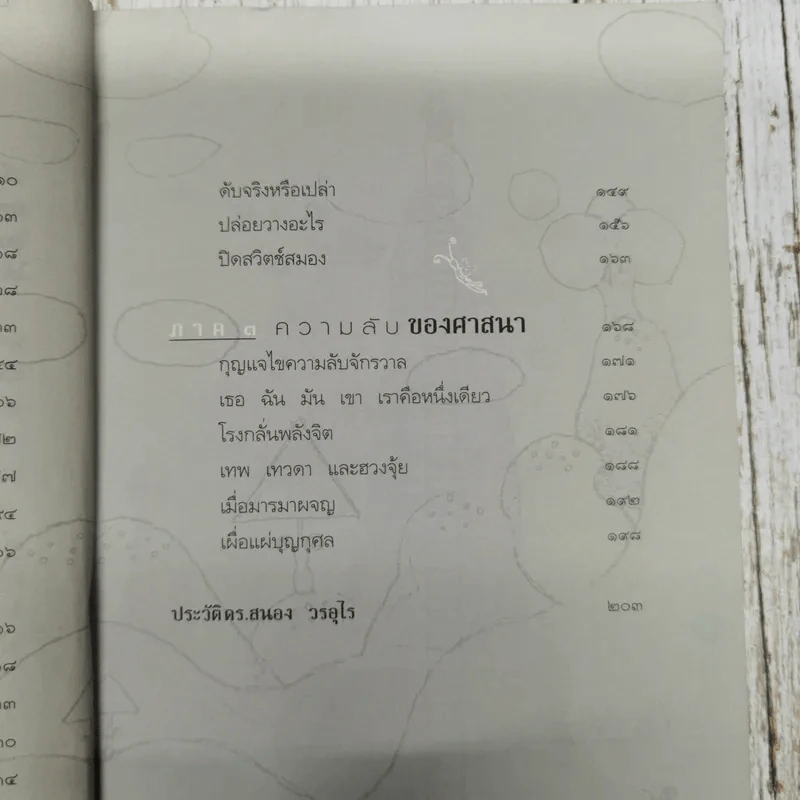 ดับจริงหรือเปล่า ๑๔๙
ปล่อยวางอะไร ๑๕๖
ปิดสวิตช์สมอง ๑๖๓
ภาค ๓ ความลับของศาสนา ๑๖๘
กุญแจไขความลับจักรวาล ๑๗๑
เธอ ฉัน มัน เขา เราคือหนึ่งเดียว ๑๗๖
โรงกลั่นพลังจิต ๑๘๑
เทพ เทวดา และฮวงจุ้ย ๑๘๘
เมื่อมารมาผจญ ๑๙๒
เผื่อแผ่บุญกุศล ๑๙๘
ประวัติดร.สนอง วรอุไร ๒๐๓